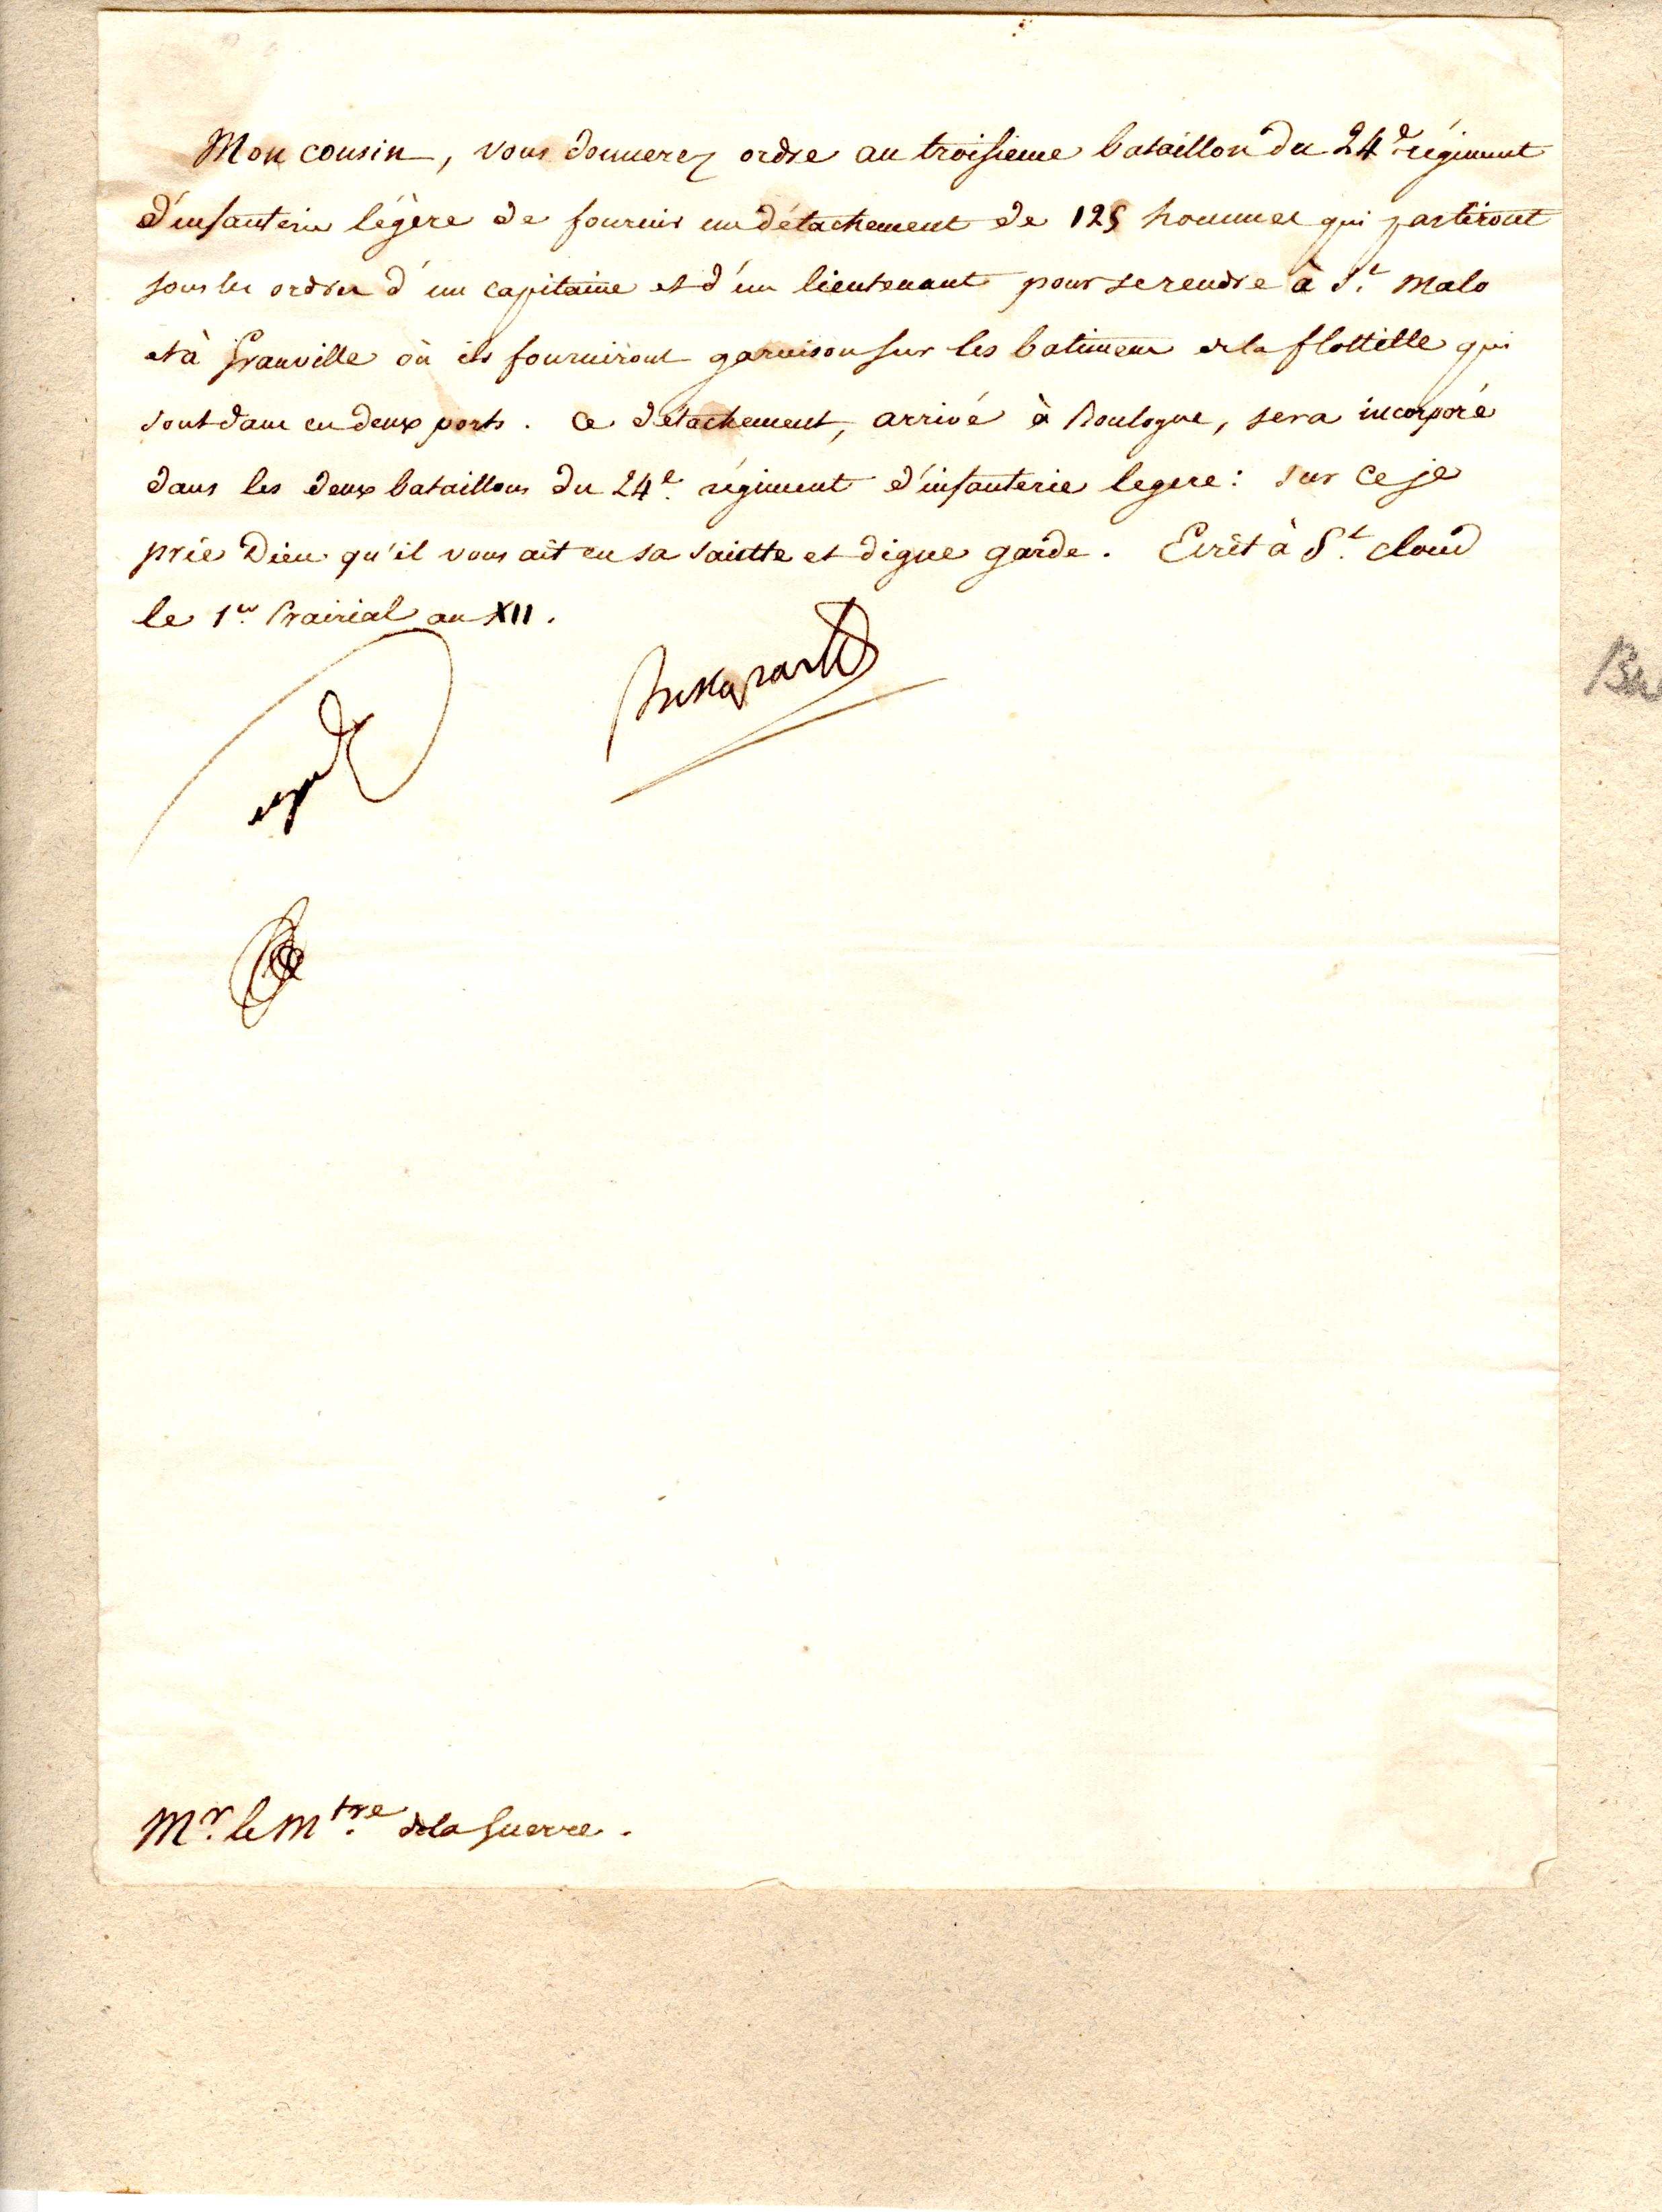 Mon cousin, vous donnerez ordre au troisieme bataillon du 24e régiment
d'infanterie légère de fournir un détachement de 125 hommes qui partiront
sous les ordres d'un capitaine et d'un lieutenant pour se rendre à St. Malo
et à Granville où ils fourniront garnison sur les batimens de la flottille qui
sont dans ces deux ports. Ce détachement, arrivé à Boulogne, sera incorporé
dans les deux bataillons du 24e. régiment d'infanterie legere: sur ce je
prie Dieu qu'il vous ait en sa saintte et digne garde. Ecrit à St. Cloud
le 1er. Prairial an XII.
Bonaparte
Mr. le Mtre. de la Guerre.